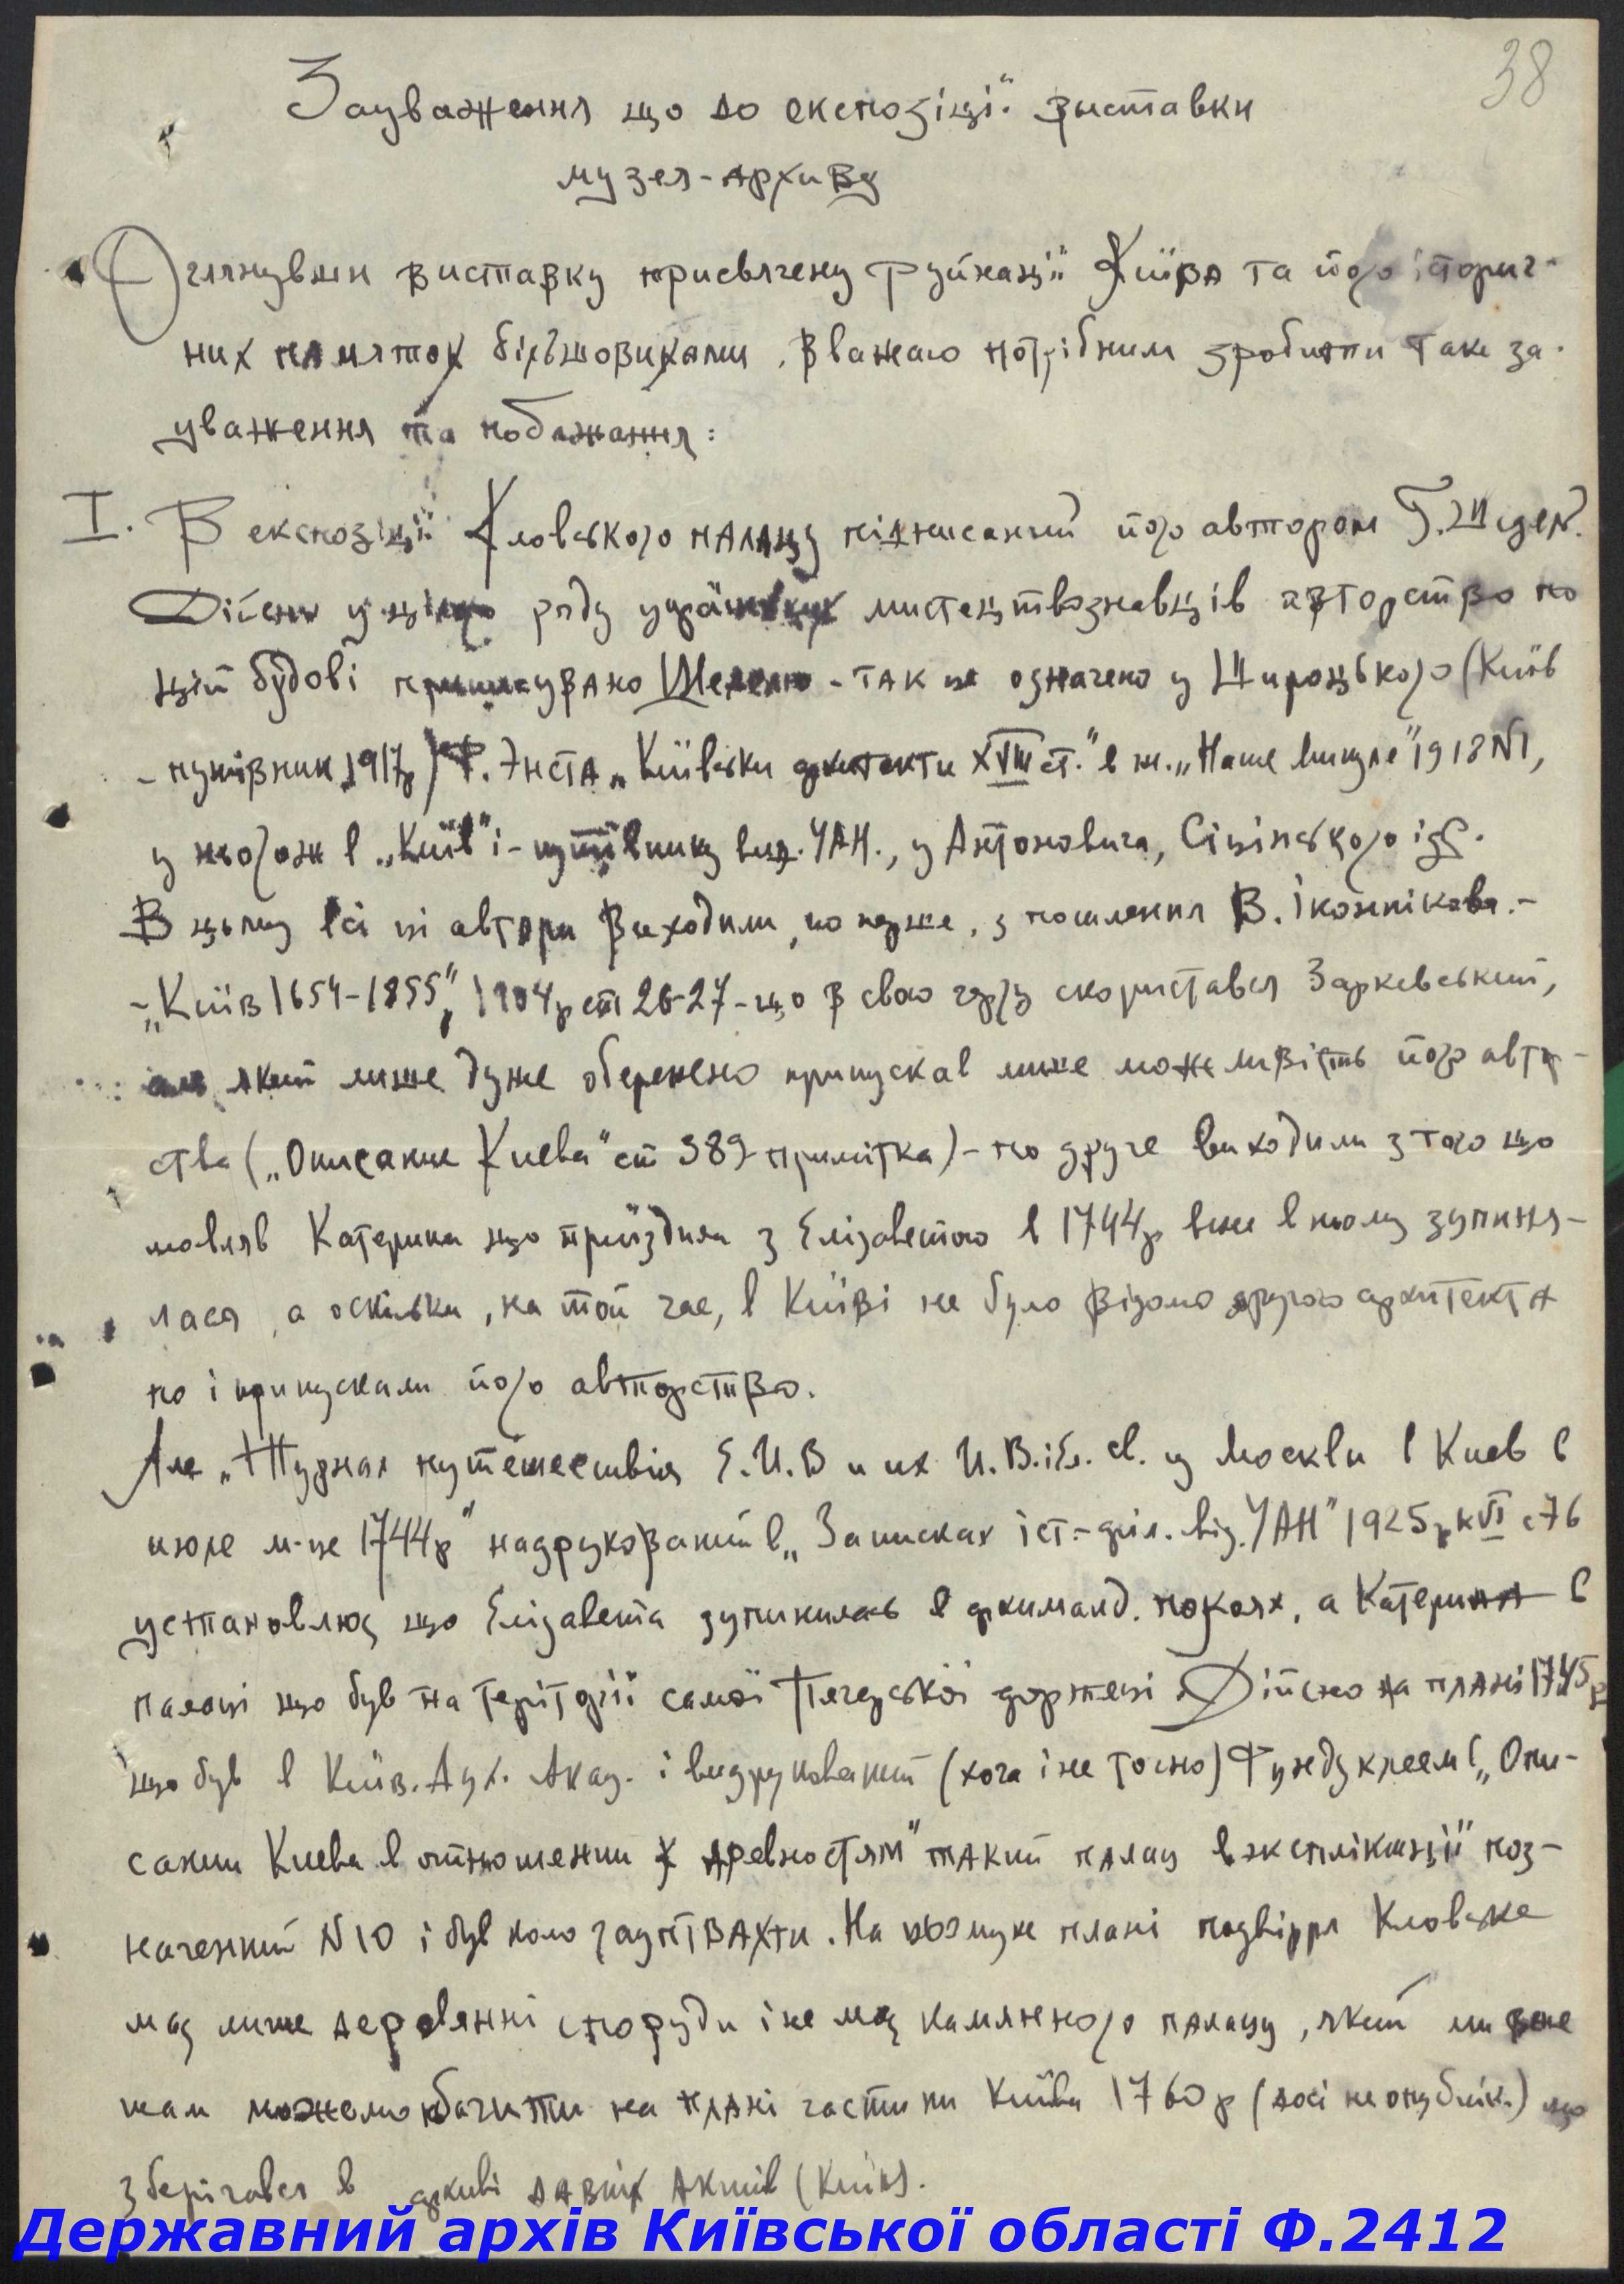 38
Зауваження що до експозіціі виставки
музея-архиву
Оглянувши виставку присвячену руйнаціі Київа та його історич-
них памяток більшовиками, вважаю потрібним зробити такі за-
уваження та побажання:
I. В експозиціі Кловського палацу підписаний його автором Г. Шедел.
Дійсно у цілого ряду українських мистецтвознавців авторство по
цій будові приписувано Шеделю - так це означено у Щироцького (Київ
- путівник 1917р) Ф. Энста „Київськи архитекти XVIII ст." в ж. „Наше минуле" 1918 N1,
у нього ж в „Київ" і - путівнику вид. УАН., у Антоновича, Сіцінського і др.
В цьому всі ці автори виходили, по перше, з посилення В. Іконнікова.-
-„Київ 1654-1855", 1904р ст 26-27 - що в свою чергу скористався Закревський,
але який лише дуже обережено припускав лише можливість його авто-
ства („Описание Киева" ст 389 - примітка) - по друге виходили з того що
мовляв Катерина що приїздила з Елізаветою в 1744р вже в ньому зупиня-
лася, а оскільки, на той час, в Київі не було відомо другого архитекта
то і припускали його авторство.
Але „Журнал путешествія Е.И.В и их И.В. і Ел. св. у Москви в Киев в
июле м-це 1744р" надрукований в „Записках іст.-філ. від. УАН" 1925р к VI с 76
установлює що Елізавета зупинилась в архиманд. покоях, а Катерина в
палаці що був на території самої Печерської фортеці. Дійсно на плані 1745р
що був в Київ. Дух. Акад. і видрукований (хоча і не точно) Фундуклеем („Опи-
сании Киева в отношении к древностям" такий палац в эксплікаціїї поз-
начений N10 і був коло гауптвахти. На цьому же плані подвірря Кловське
має лише деревянні споруди і не має камянного палацу, який ми вже
там можемо бачити на плані частини Київа 1760р (досі не опублік.) що
зберігався в архиві давніх Актів (Київ).
Державний архів Київської області Ф.2412